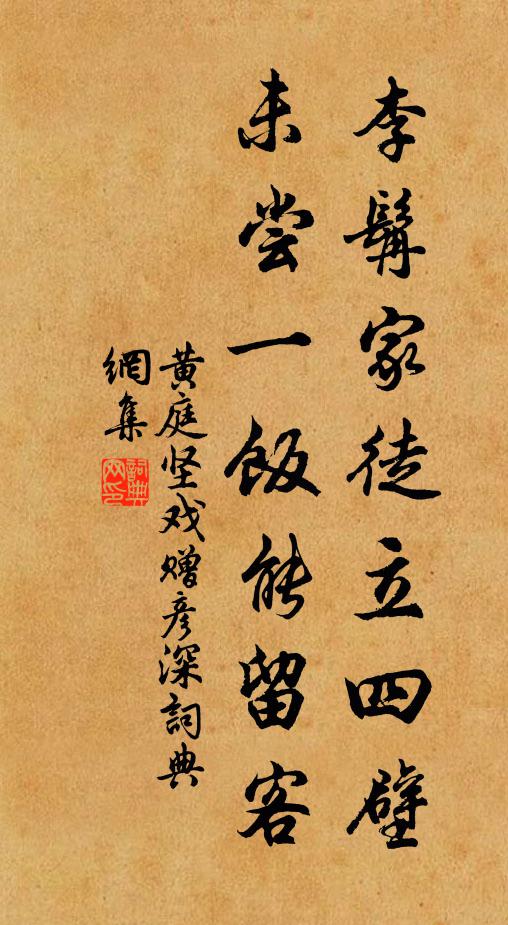 李髯家徒立四壁
未尝一飯能留客
黄庭坚戏赠彦深詞典
網集
詞典
网印